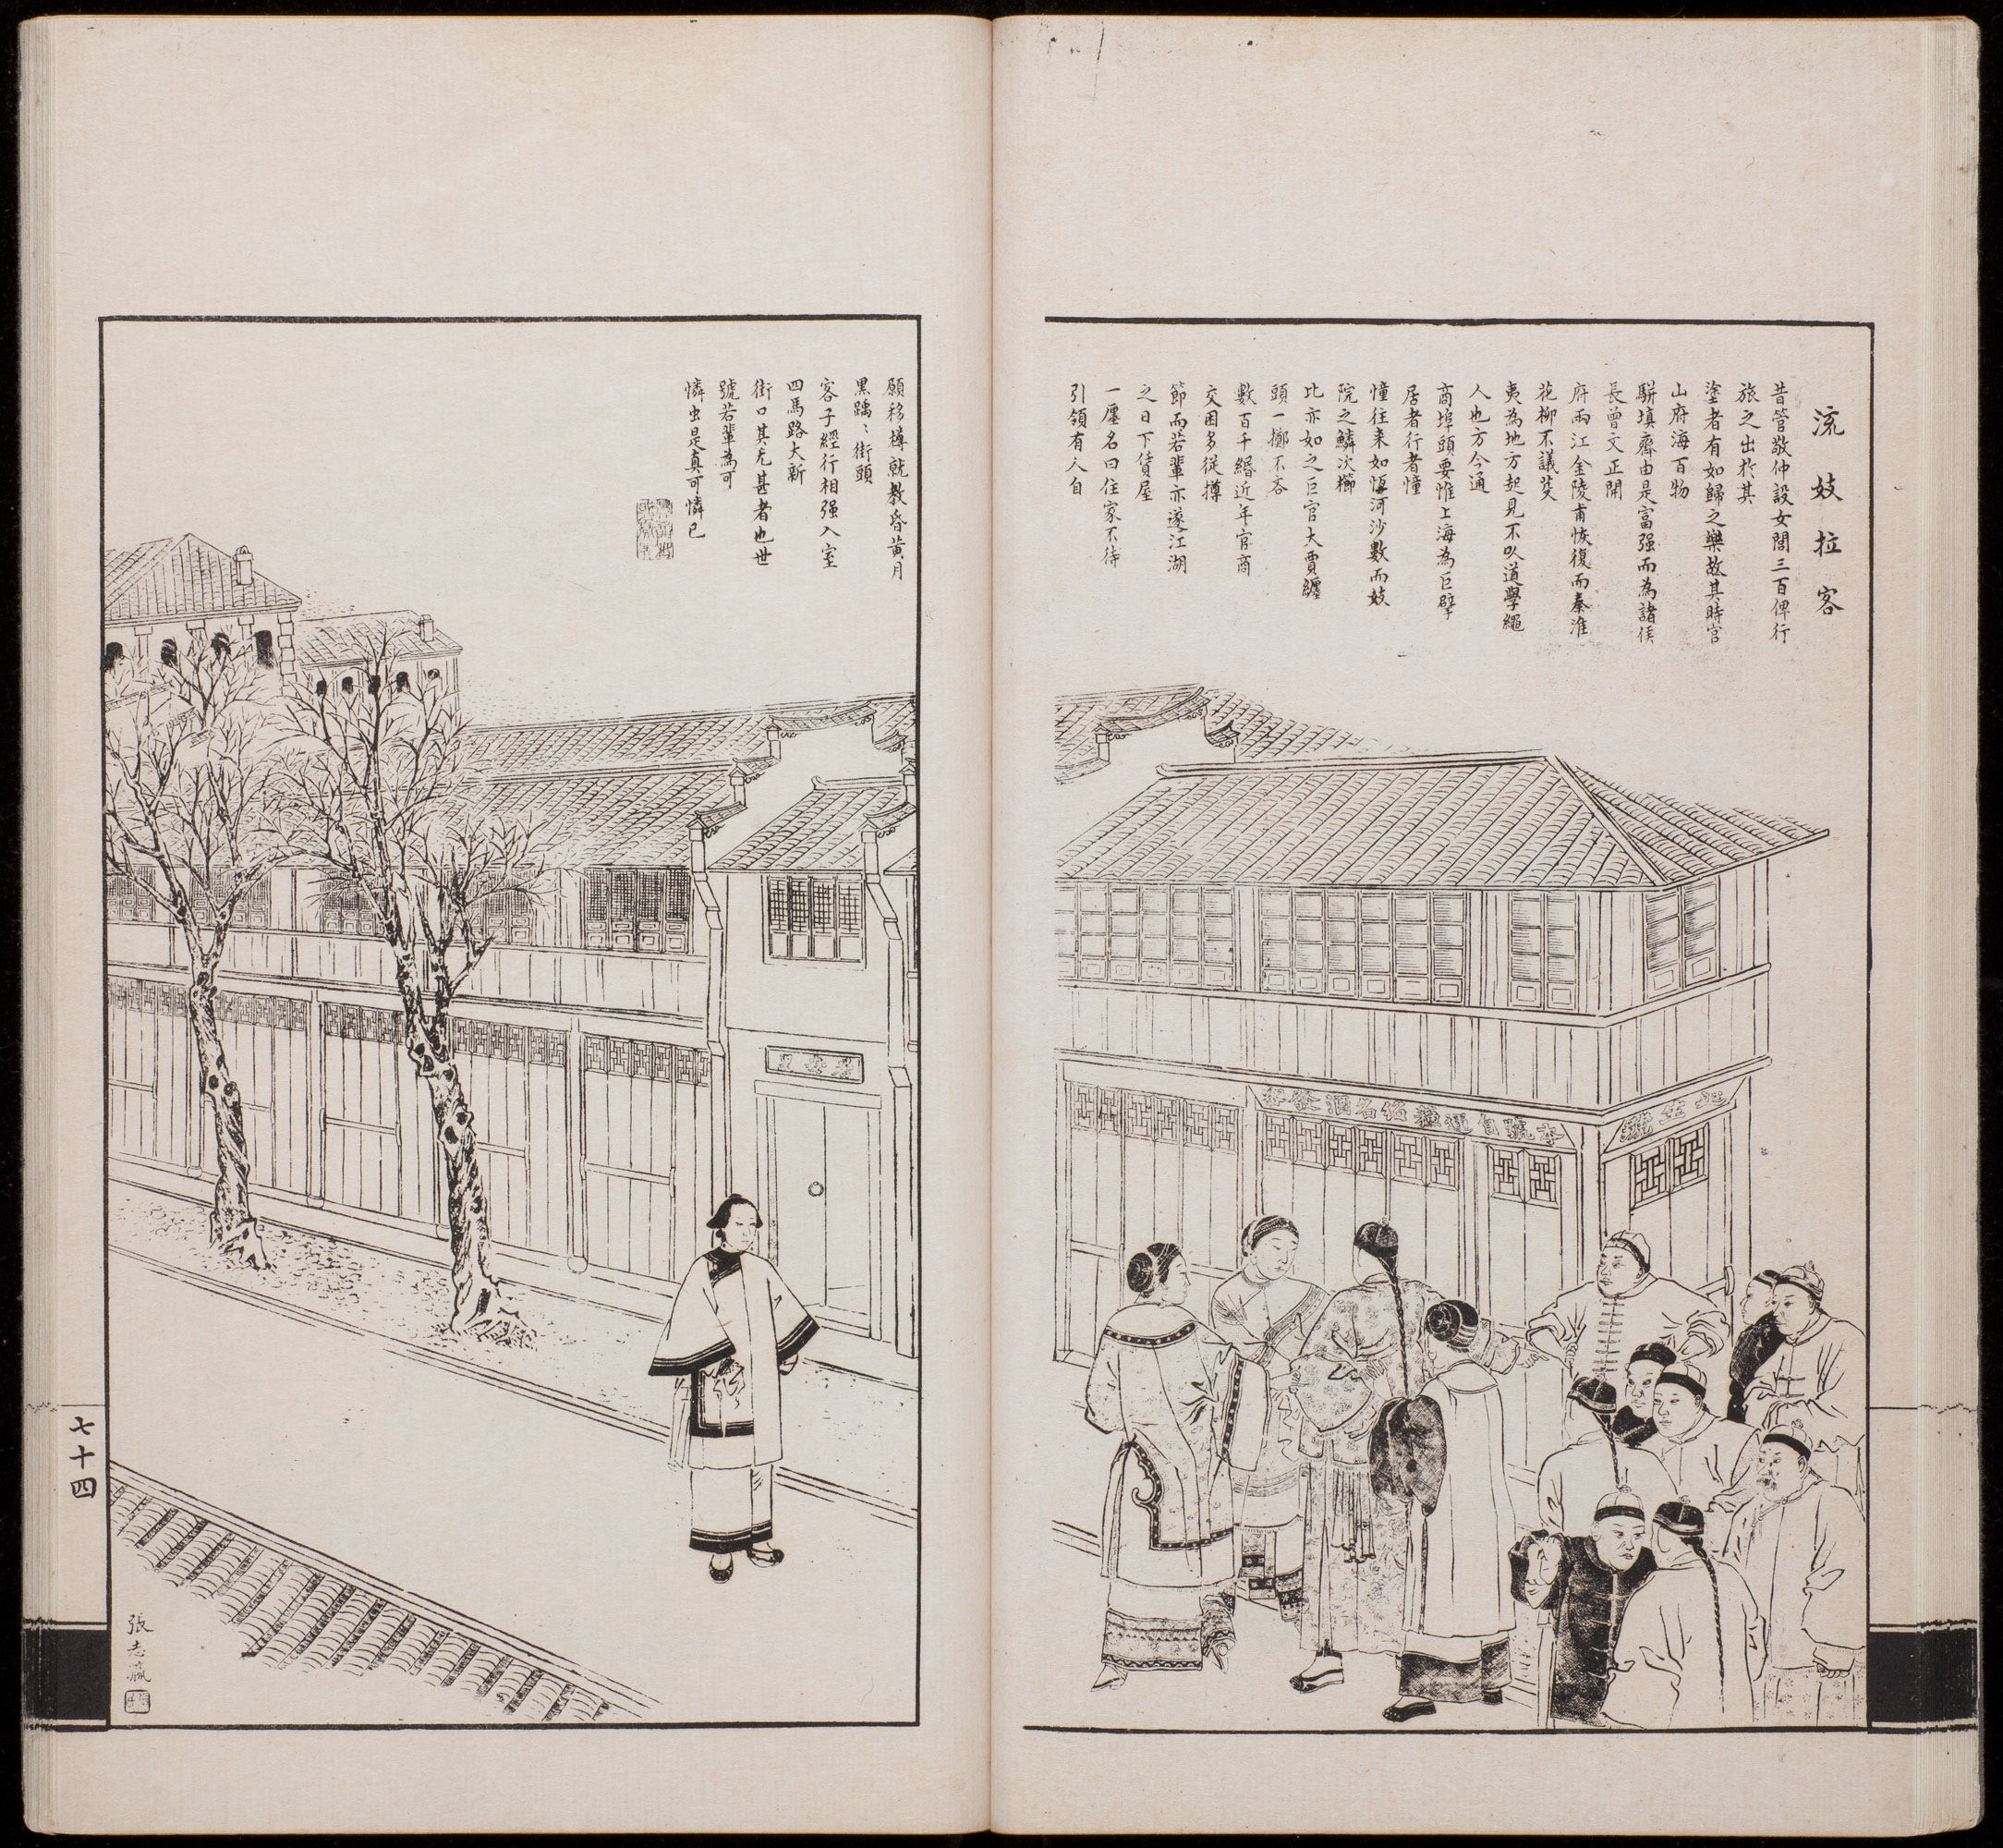 流妓拉客
昔管敬仲設女閭三百俾行
旅之出於其
塗者有如歸之樂故其時官
山府海百物
駢填齊由是富强而為諸侯
長曾文正開
府兩江金陵甫恢復而秦淮
花柳不議芟
夷為地方起見不以道學繩
人也方今通
商埠頭要惟上海為巨擘
居者行者憧
憧往来如恆河沙數而妓
院之鱗次櫛
比亦如之巨官大賈纏
頭一擲不吝
數百千緡近年官商
交困多從撙
節而若輩亦遂江湖
之日下賃屋
一廛名曰住家不待
引領有人自
願移樽就教昏黃月
黑踽〻街頭
客子經行相强入室
四馬路大新
街口其尤甚者也世
號若輩為可
憐虫是真可憐已
本號自運紹名酒發
七十四
張志瀛